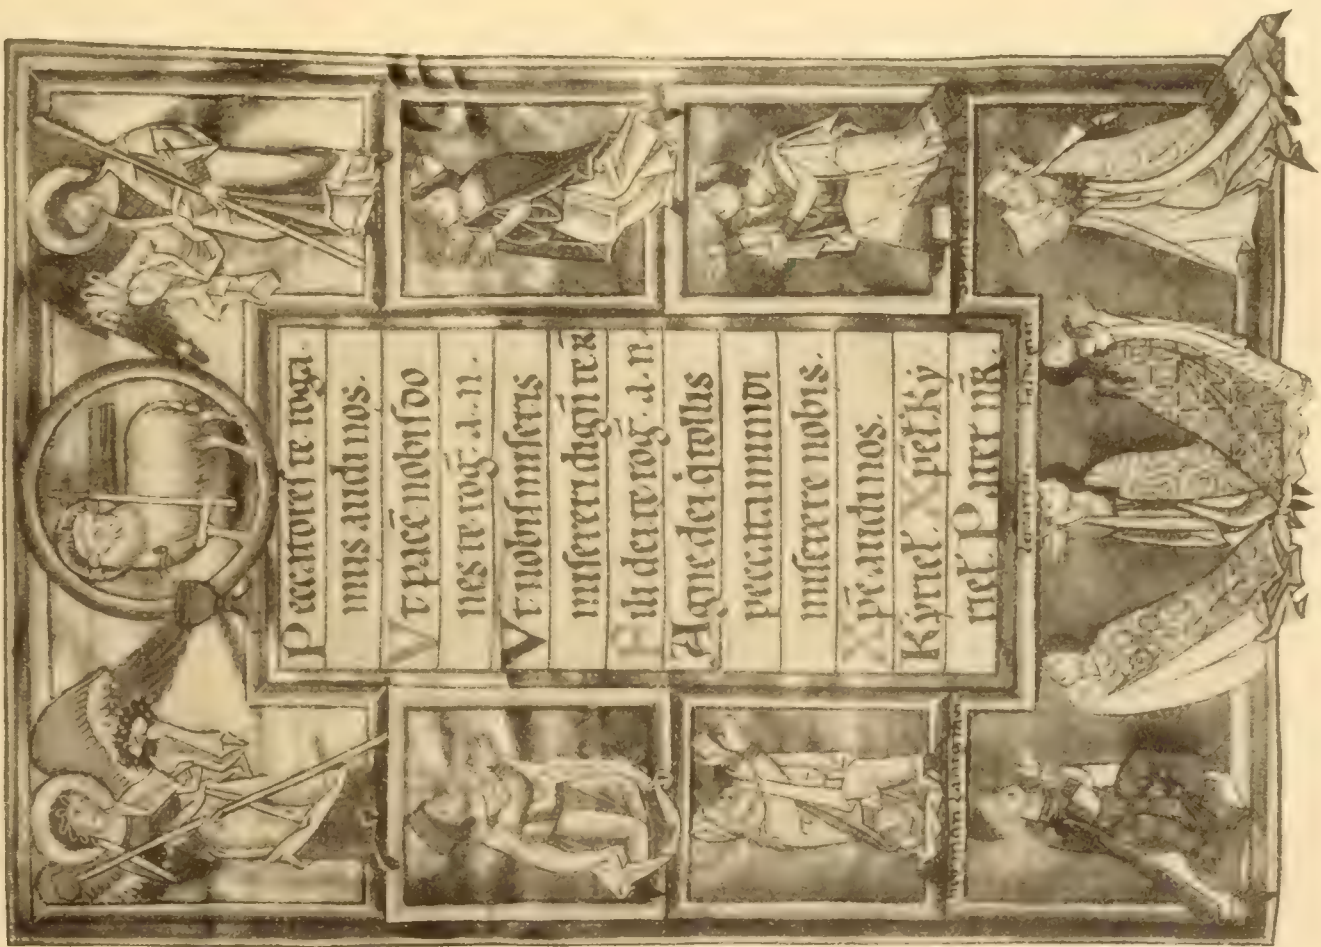 Peccatoreſ te roga
mus audi nos.
Vt pacē nobiſ do
nes te rog̅. a. n.
Vt nobiſ miſeris
miſereri dign̅ te R
Fili dei te rog̅. a. n.
Agne dei q tollis
peccata mundi
miſerere nobis.
Xp̅e audi nos.
Kẏriel'. Xp̅el' kẏ
riel'. Pater nr̅.